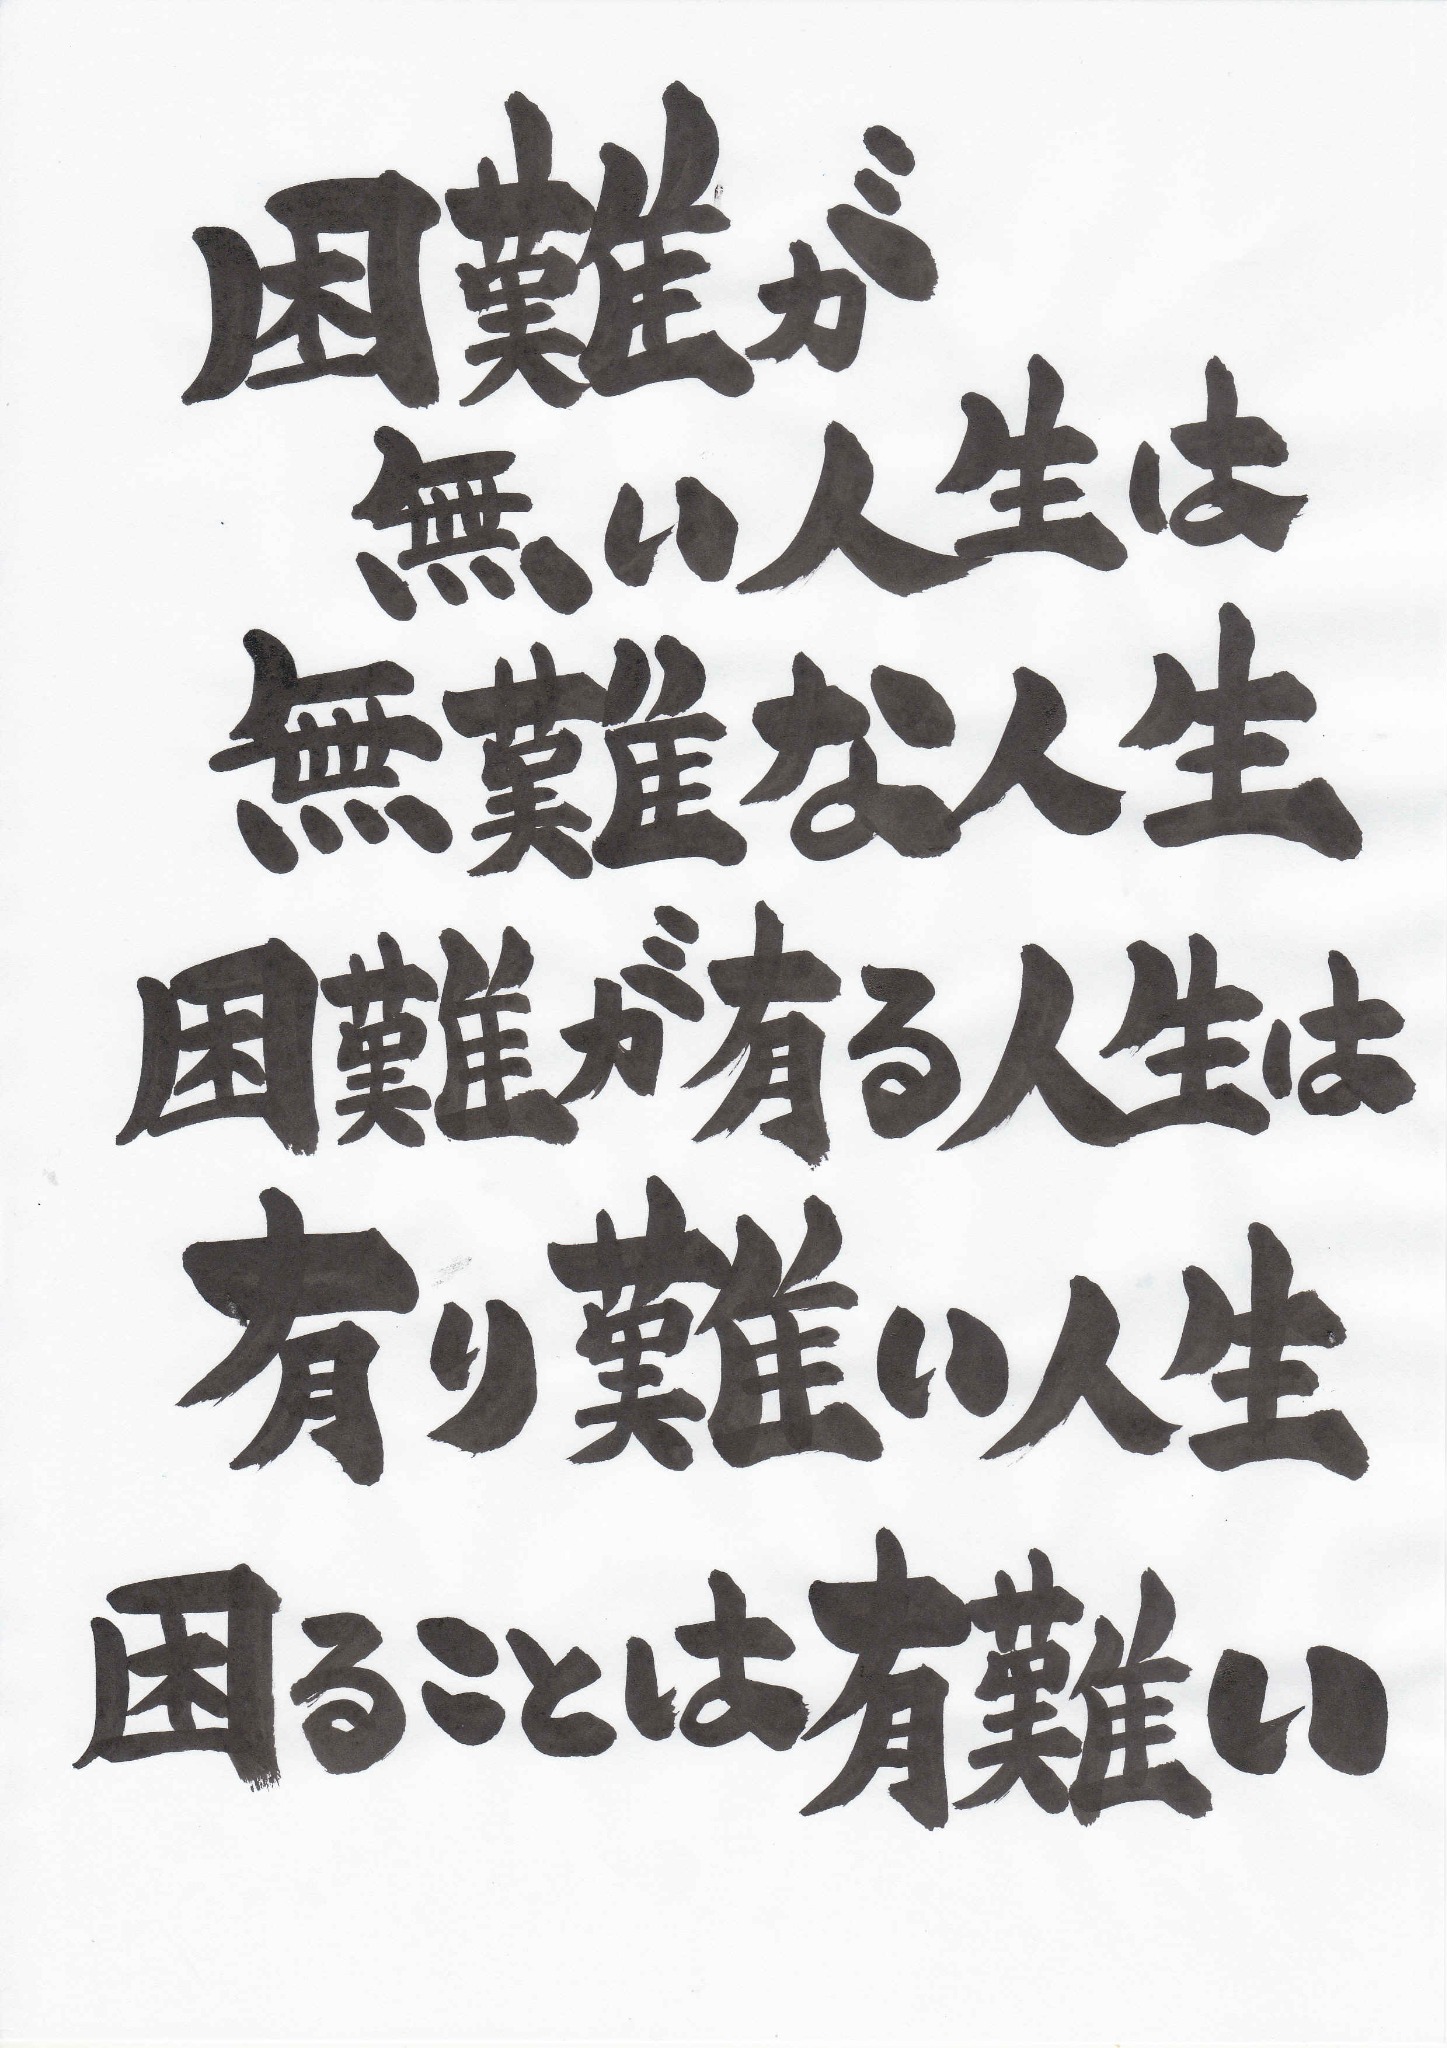 困難が
無い人生は
無難な人生
困難が有る人生は
有り難い人生
困ることは有難い